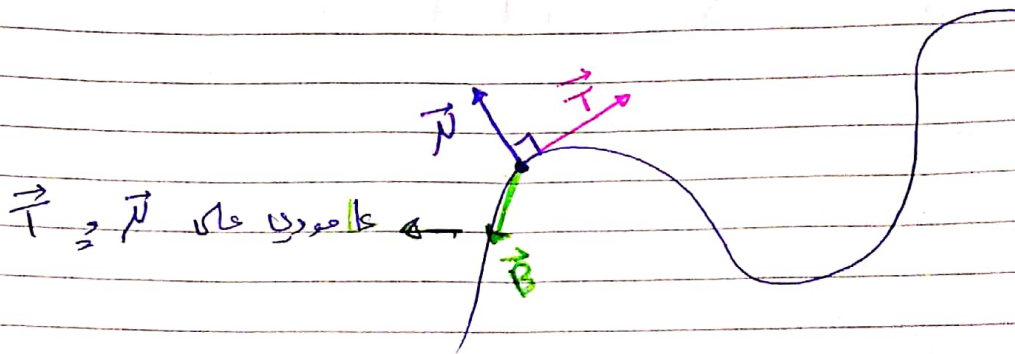 $\vec{T}$
$\vec{N}$
عامودي على $\vec{N}$ و $\vec{T}$
$\vec{B}$